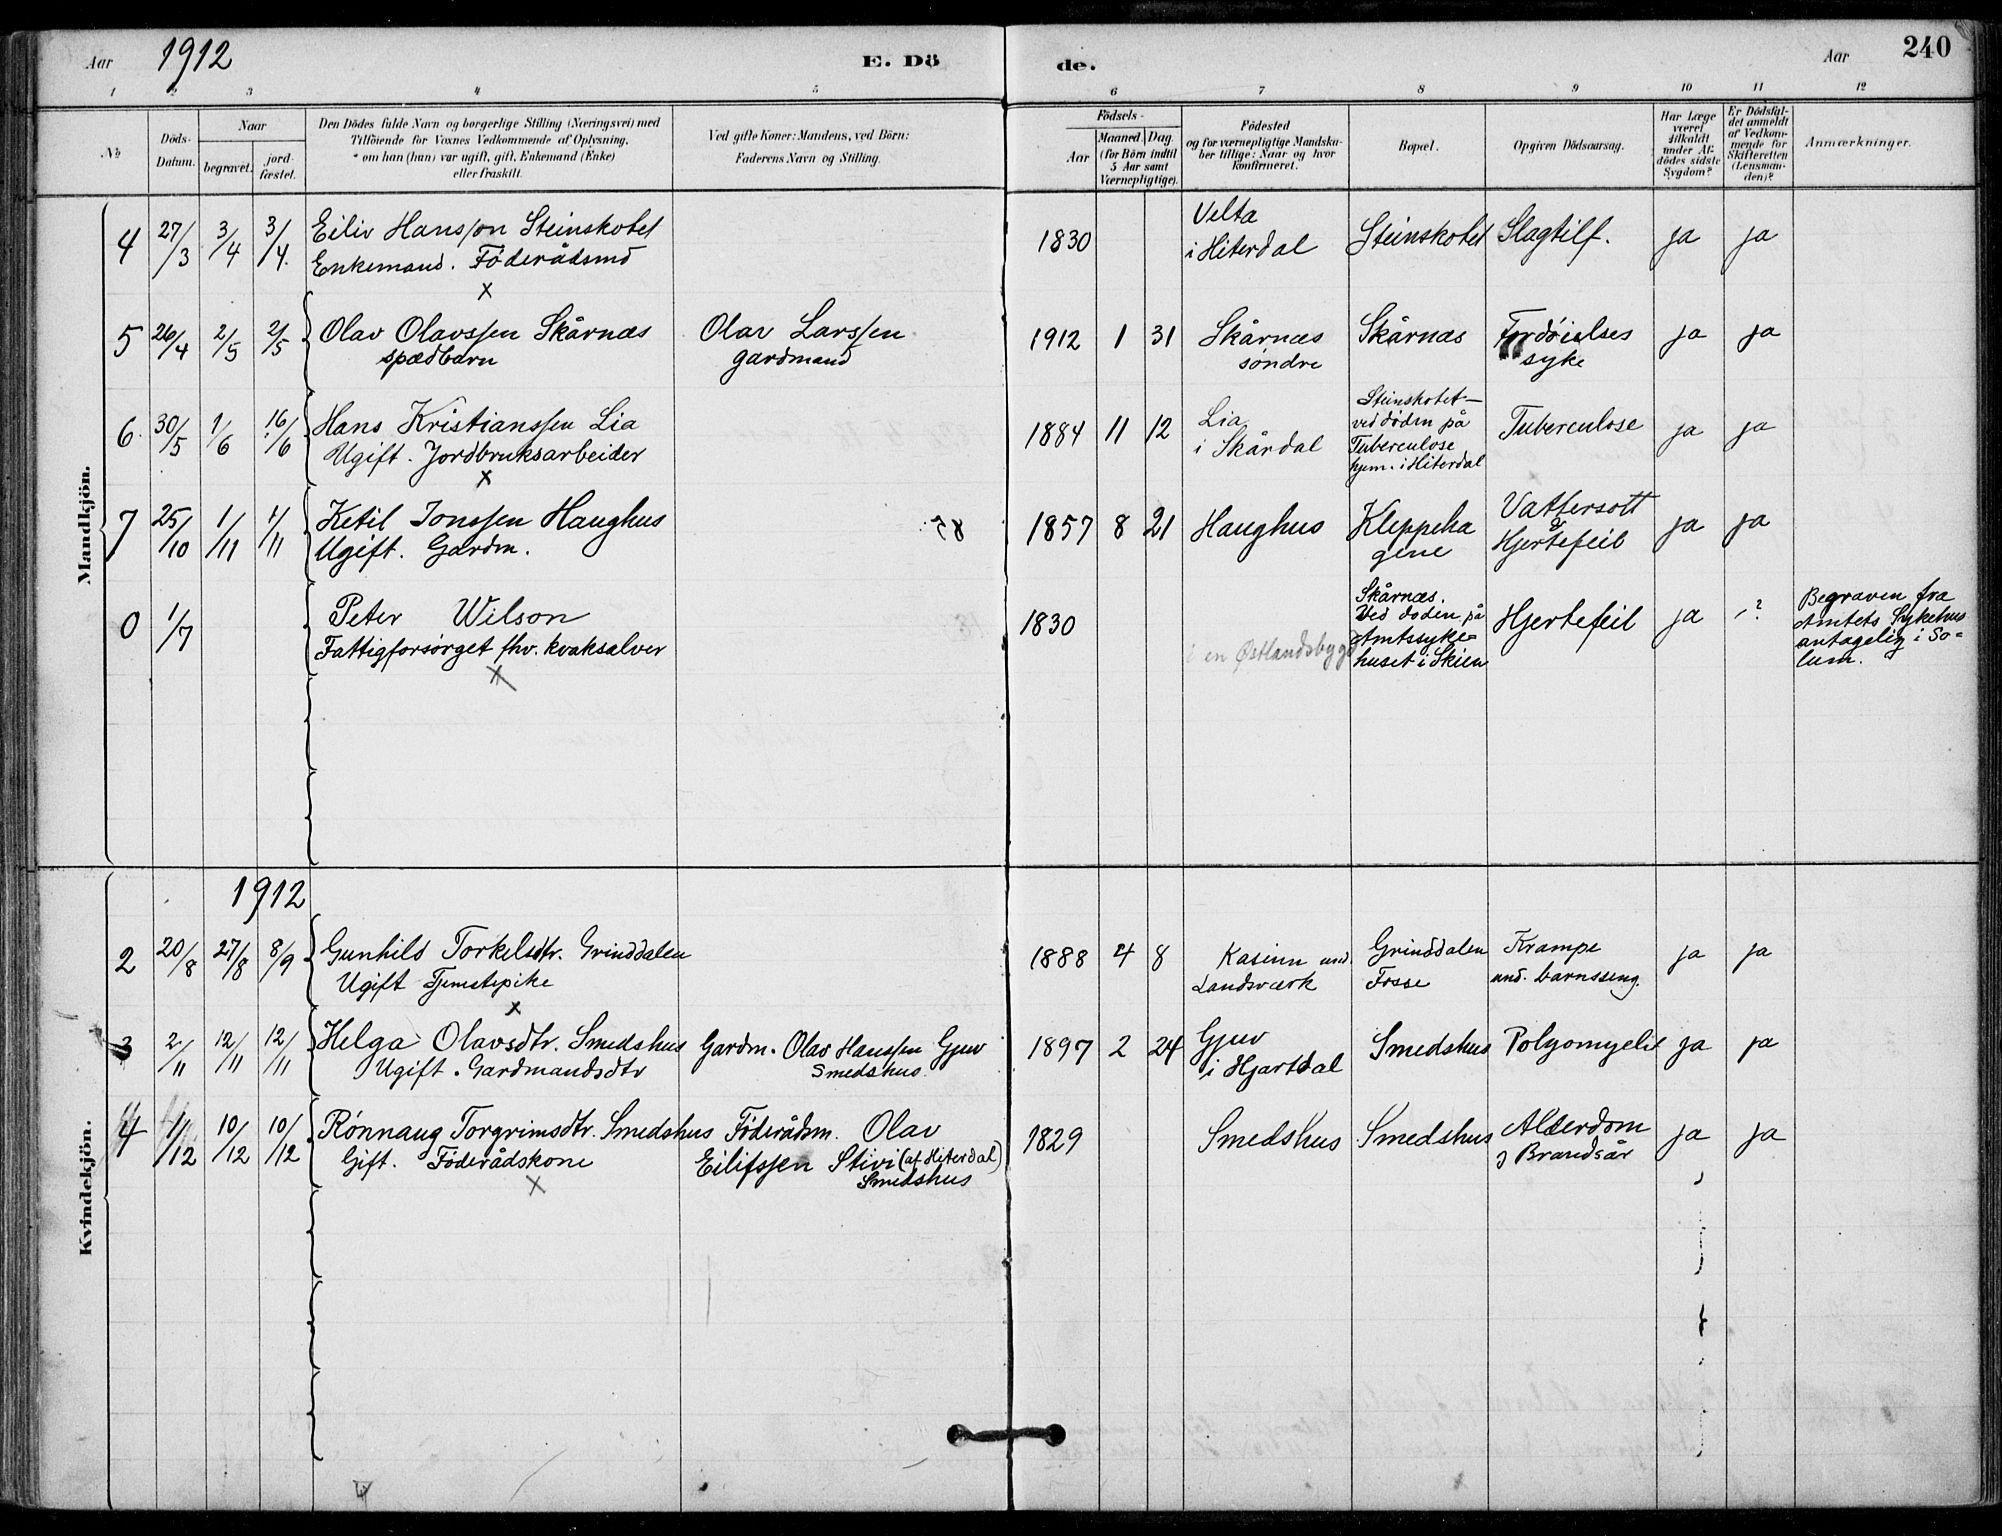 Aar 1912 E. Dö de. Aar 240
1 2 3 4 5 6 7 8 9 10 11 12
No
Döds-
Datum.
Naar
begravet.
jord-
fæstet.
Den Dödes fulde Navn og borgerlige Stilling (Næringsvei) med
Tilföiende for Voxnes Vedkommende af Oplysning,
* om han (hun) var ugift, gift, Enkemand (Enke)
eller fraskilt.
Ved gifte Koner: Mandens, ved Börn:
Faderens Navn og Stilling.
Födsels-
Aar
Maaned. Dag
(for Börn indtil
5 Aar samt
Værnepligtige).
Födested
og for værnepligtige Mandska-
ber tillige: Naar og hvor
konfirmeret.
Bopæl.
Opgiven Dödsaarsag.
Har Læge
været
tilkaldt
under Af-
dödes sidste
Sygdom?
Er Dödsfal-
det anmeldt
af Vedkom-
mende for
Skifteretten
(Lensman-
den)?
Anmærkninger.
Mandkjön.
4 27/3 3/4 3/4. Eiliv Hansson Steinskotet
Enkemand. Föderådsmd
x
1830
Velta
i Hiterdal
Steinskotet
Slagtilf.
ja ja
5 26/4 2/5 2/5 Olav Olavssen Skårnæs
spædbarn
Olav Larssen
gardmand
1912 1 31
Skårnæs
søndre
Skårnæs
Fordøielses
syke
ja ja
6. 30/5 1/6 16/6 Hans Kristianssen Lia
Ugift. Jordbruksarbeider
x
1884 11 12
Lia
i Skårdal
Steinskotet-
ved døden på
Tuberculose
hjem. i Hiterdal
Tuberculose
ja ja
7 25/10 1/11 1/11 Ketil Jonssen Haughus
Ugift. Gardm.
1857 8 21
Haughus
Kleppeha
gene
Vattersott
&
Hjertefeil
ja ja
0 1/7 Peter Wilson
Fattigforsørget fhv. kvaksalver
x
1830
i en Østlandsbygd
Skårnæs.
Ved døden på
Amtssyke=
huset i Skien
Hjertefeil
ja -?
Begraven fra
Amtets Sykehus
antagelig i So=
lum.
Kvindekjön.
1912
2 20/8 27/8 8/9 Gunhild Torkelsdtr. Grinddalen
Ugift Tjenestepike
x
1888 4 8
Kasinn und.
Landsværk
Grinddalen
Fosse
Krampe
und. barnsseng.
ja ja
3 2/11 12/11 12/11 Helga Olavsdtr. Smedshus
Ugift. Gardmandsdtr
Gardm. Olav Hanssen Gjuv
Smedshus
1897 2 24
Gjuv
i Hjartdal
Smedshus
Polyomyelit
ja ja
4 1/12 10/12 10/12 Rønnaug Torgrimsdtr. Smedshus
Gift. Föderådskone
x
Föderådsm. Olav
Eilifssen Stivi (af Hiterdal)
Smedshus
1829
Smedshus
Smedshus
Alderdom
og Brandsår
ja ja